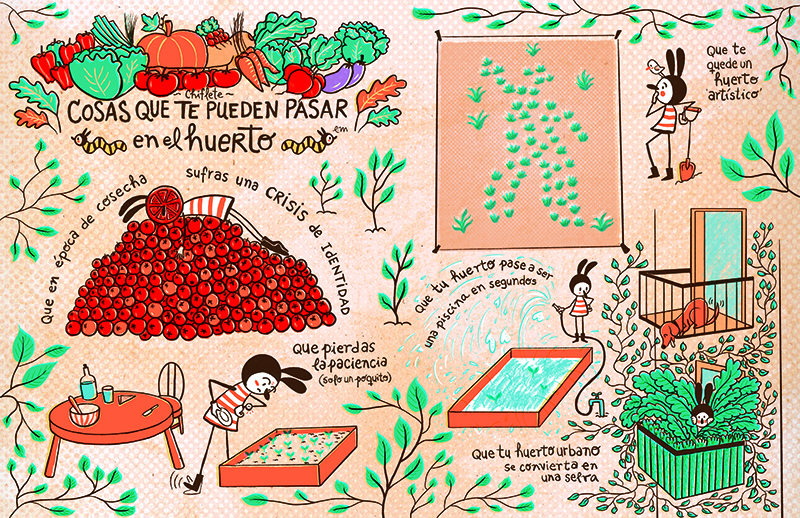 ~ Chiflete ~
COSAS QUE TE PUEDEN PASAR
en el huerto
em
Que en época de cosecha
sufras una CRISIS de IDENTIDAD
Que te
quede un
huerto
'artístico'
Que tu huerto pase a ser
una piscina en segundos
Que pierdas
la paciencia
(solo un poquito)
Que tu huerto urbano
se convierta en
una selva